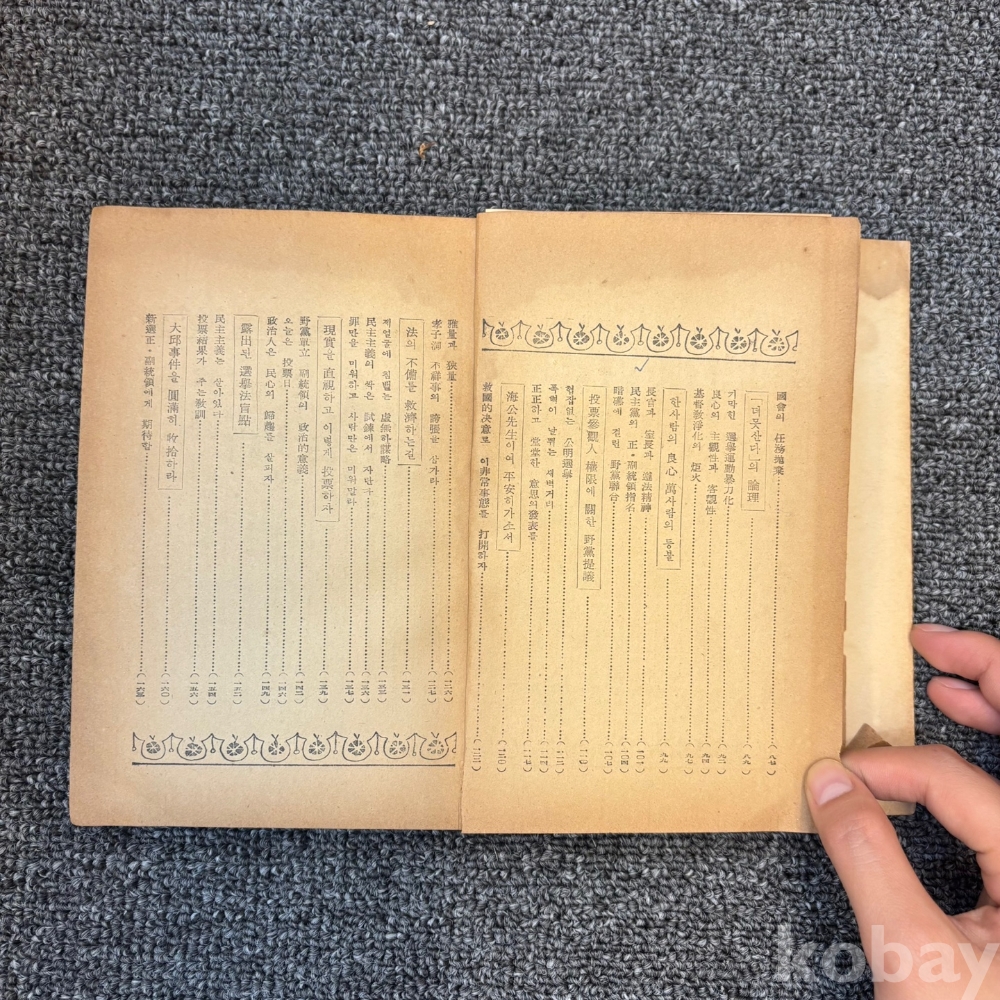 國會의 任務抛棄 (八七)
「더못산다」의 論理 (八九)
기막힌 選擧運動暴力化 (九二)
良心의 主觀性과 客觀性 (九四)
基督敎淨化의 炬火 (九七)
한사람의 良心 萬사람의 등불 (九九)
長官과 室長과 遵法精神 (一〇一)
民主黨의 正•副統領指名 (一〇四)
暗礁에 걸린 野黨聯合 (一〇七)
投票參觀人 權限에 關한 野黨提議 (一一〇)
협잡없는 公明選擧
폭력이 날뛰는 새벽거리
正正하고 堂堂한 意思의 發表를 (一一七)
海公先生이여 平安히가소서 (一二〇)
救國的決意로 이非常事態를 打開하자 (一二三)
雅量과 狹量 (一二六)
孝子洞 不祥事의 誇張을 삼가라
法의 不備를 救濟하는길
제얼굴에 침뱉는 虛無한謀略
民主主義의 싹은 試鍊에서 자란다 (一三六)
罪만을 미워하고 사람만은 미워말라 (一三七)
現實을 直視하고 이렇게 投票하자 (一三九)
野黨單立 副統領의 政治的意義 (一四二)
오늘은 投票日 (一四六)
政治人은 民心의 歸趨를 살피자 (一四九)
露出된 選擧法盲點 (一五一)
民主主義는 살아있다 (一五四)
投票結果가 주는敎訓 (一五六)
大邱事件을 圓滿히 收拾하라 (一六〇)
新選正•副統領에게 期待함 (一六三)
kobay